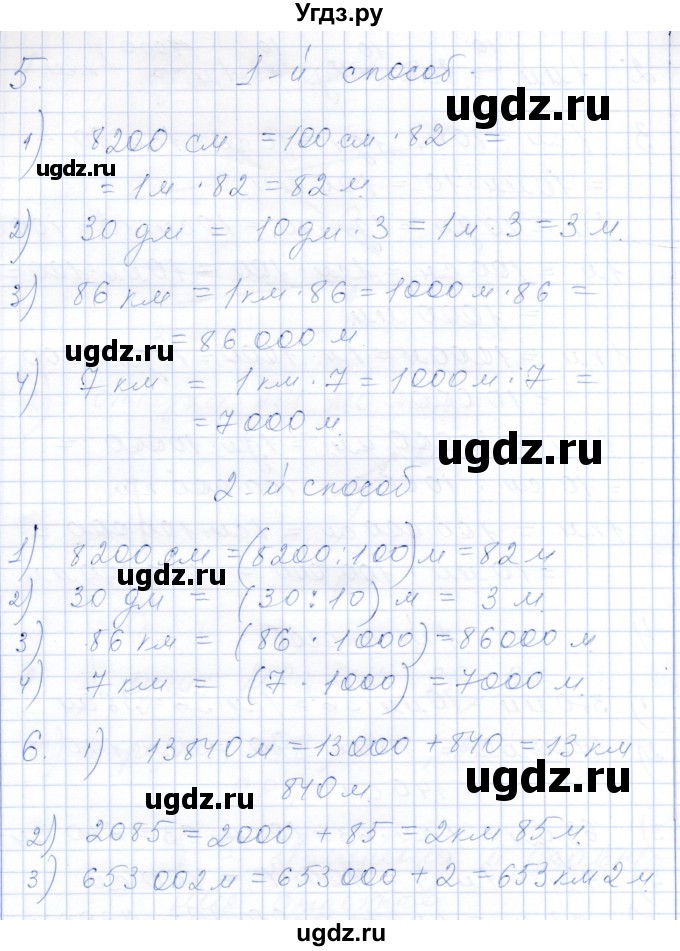 Угдз.ру
5. 1-й способ.
ugdz.ru
1) 8200 см = 100 см · 82 =
ugdz.ru
= 1 м · 82 = 82 м.
2) 30 дм = 10 дм · 3 = 1 м · 3 = 3 м.
3) 86 км = 1 км · 86 = 1000 м · 86 =
= 86 000 м
ugdz.ru
4) 7 км = 1 км · 7 = 1000 м · 7 =
= 7 000 м.
ugdz.ru
2-й способ
1) 8200 см = (8200 : 100) м = 82 м
ugdz.ru
2) 30 дм = (30 : 10) м = 3 м.
3) 86 км = (86 · 1000) = 86000 м
ugdz.ru
4) 7 км = (7 · 1000) = 7000 м.
6. 1) 13840 м = 13000 + 840 = 13 км
ugdz.ru
840 м.
ugdz.ru
2) 2085 = 2000 + 85 = 2 км 85 м.
3) 653 002 м = 653 000 + 2 = 653 км 2 м
ugdz.ru